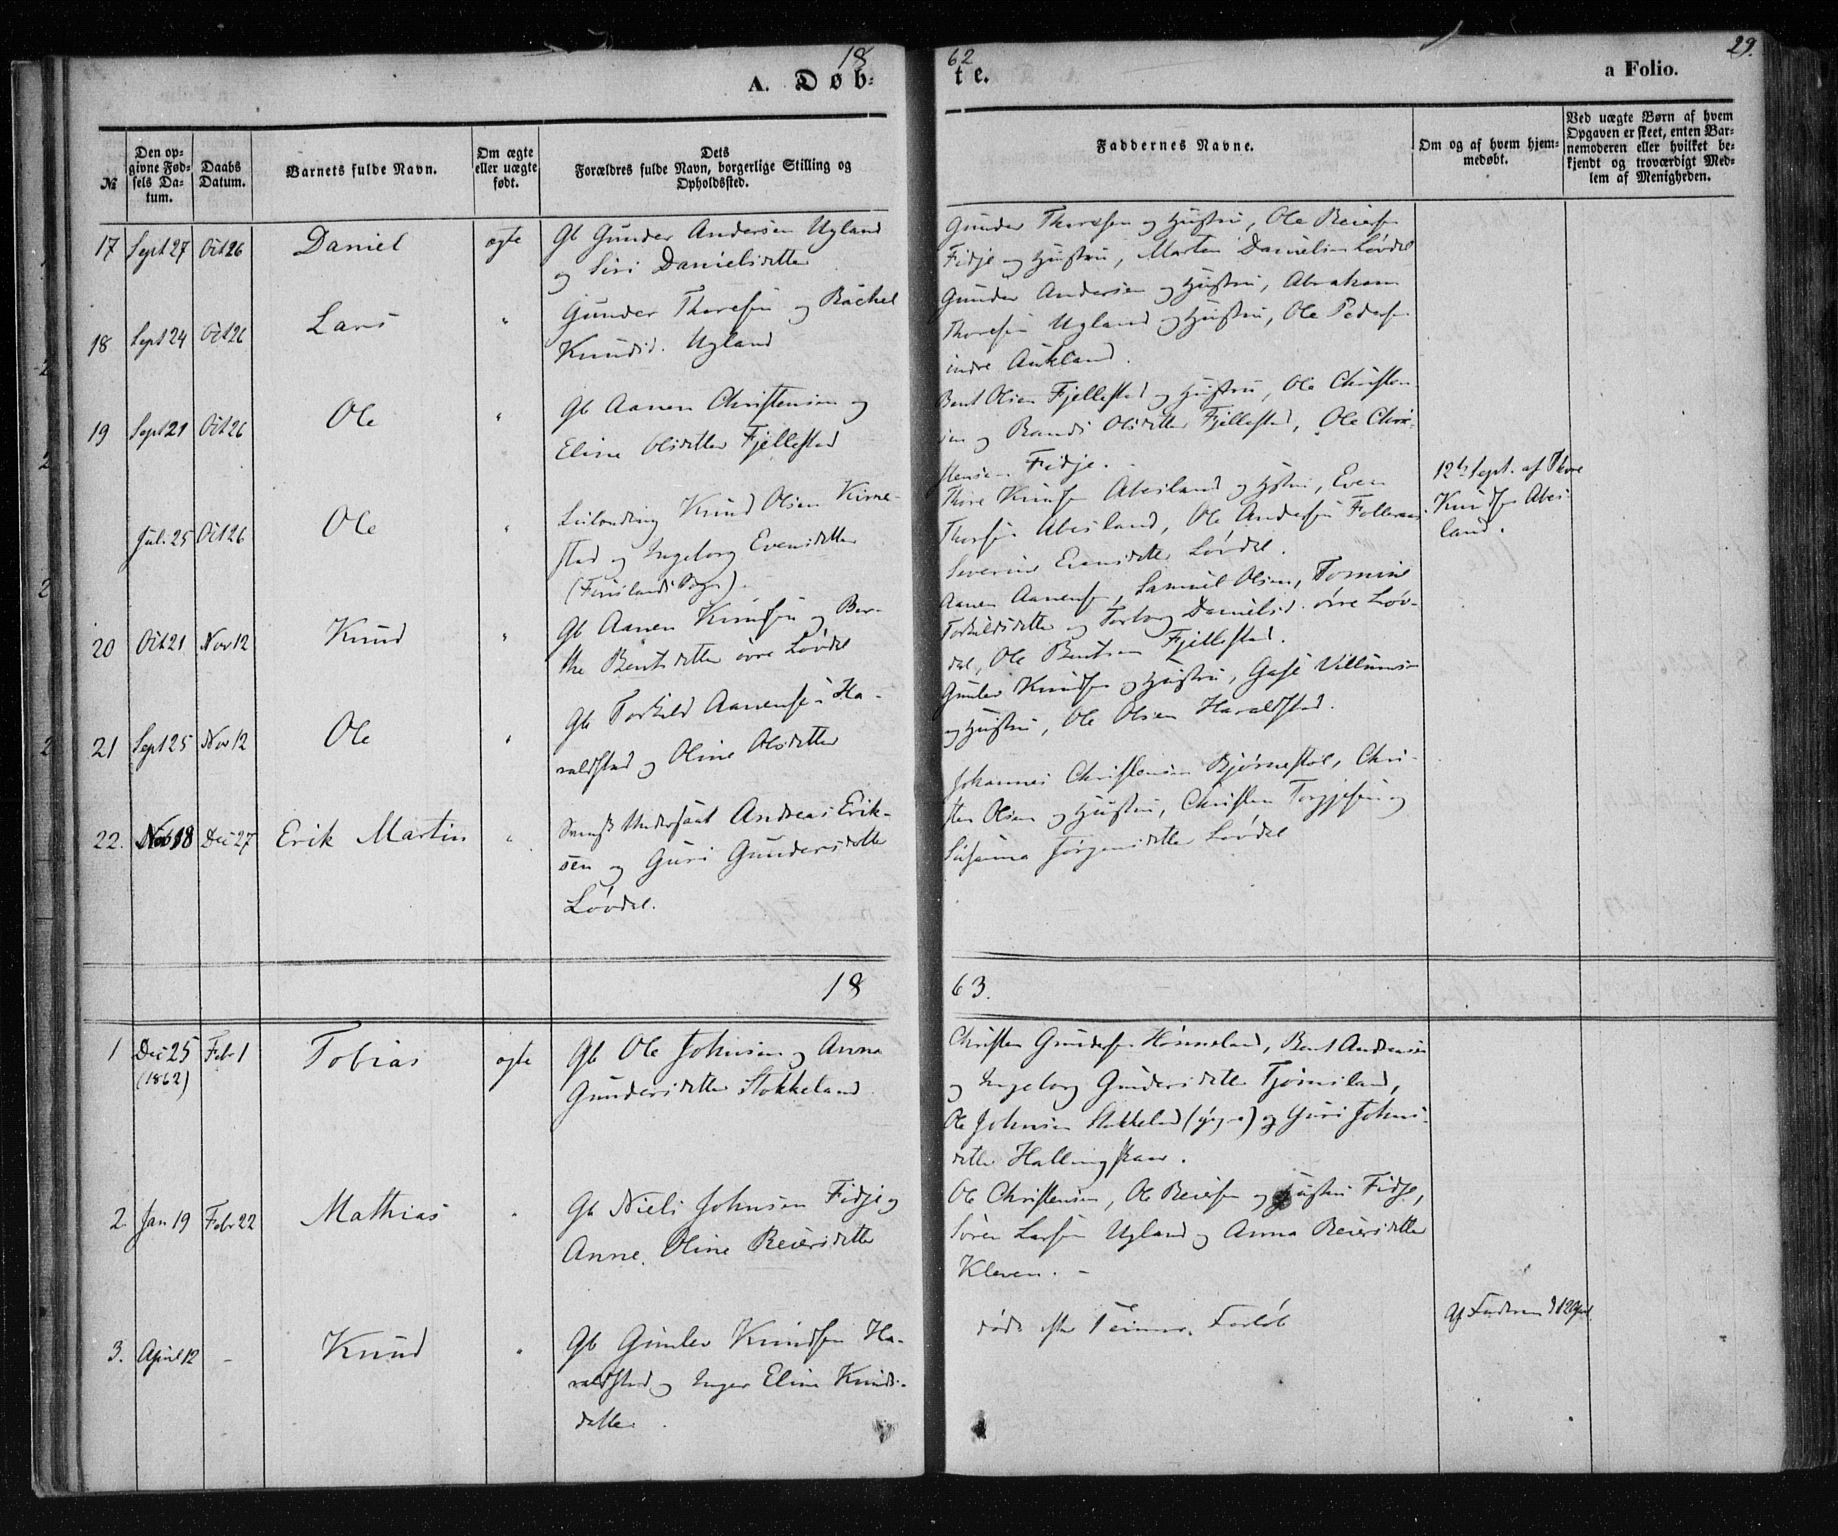 18
62
29.
A. Døb-
te.
a Folio.
№
Den op-
givne Fød-
sels Da-
tum.
Daabs
Datum.
Barnets fulde Navn.
Om ægte
eller uægte
født.
Dets
Forældres fulde Navn, borgerlige Stilling og
Opholdssted.
Faddernes Navne.
Om og af hvem hjem-
medøbt.
Ved uægte Børn af hvem
Opgaven er skeet, enten Bar-
nemoderen eller hvilket be-
kjendt og troværdigt Med-
lem af Menigheden.
17 Sept 27 Oct 26 Daniel ægte Gb Gunder Andersen Ugland
og Siri Danielsdatter
Gunder Thoresen og Hustru, Ole Reiersen
Fidje og Hustru, Marten Danielsen Løvdal
18 Sept 24 Oct 26 Lars " Gunder Thoresen og Rachel
Knudsd. Ugland
Gunder Andersen og Hustru, Abraham
Thoresen Ugland og Hustru, Ole Pedersen
indre Aukland.
19 Sept 21 Oct 26 Ole " Gb Aanen Christensen og
Eline Olsdatter Fjellestad
Bent Olsen Fjellestad og Hustru, Ole Christen-
sen og Randi Olsdatter Fjellestad, Ole Chri-
stensen Fidje.
Jul. 25 Oct 26 Ole " Leilending Knud Olsen Kirke-
stad og Ingeborg Evensdatter
(Finslands Sogn).
Thore Knudsen Abesland og Hstru, Even
Thorsen Abesland, Ole Andersen Folleraas
Severine Evensdatter Løvdal.
12te Sept. af Thore
Knudsen Abes-
land.
20 Oct 21 Nov 12 Knud " Gb Aanen Knudsen og Ber-
the Bentsdatter øvre Løvdal
Aanen Aanensen, Samuel Olsen, Tomine
Torkildsdatter og Torborg Danielsd. øvre Løv-
dal, Ole Bentsen Fjellestad.
21 Sept 25 Nov 12 Ole " Gb Torkild Aanensen Ha-
raldstad og Oline Olsdatter
Gunlev Knudsen og Hustru, Villumsen
og Hustru, Ole Olsen Haraldstad.
22. Nov 18 Dec 27 Erik Martin " Svensk Undersaat Andreas Erik-
sen og Guri Gundersdatter
Løvdal.
Johannes Christensen Bjørnestøl, Chri-
sten Olsen og Hustru, Christen Torgjesen og
Susanna Jørgensdatter Løvdal
18
63.
1 Dec 25 Febr 1 Tobias ægte Gb Ole Johnsen og Anna
(1862)
Gundersdatter Stokkeland
Christen Gundersen Hønneland, Bent Andreassen
og Ingeborg Gundersdatter Tjomsland,
Ole Johnsen Stokkeland (yngre) og Guri Johns-
datter Hallingskaar.
2. Jan 19 Febr 22 Mathias " Gb Niels Johnsen Fidje og
Anne Oline Reiersdatter
Ole Christensen, Ole Reiersen og Hustru Fidje,
Søren Larsen Ugland og Anna Reiersdatter
Kleven. -
3. April 12 - Knud " Gb Gunlev Knudsen Ha-
raldstad og Inger Eline Knuds-
datter
døde efter 1 Times Forløb
Af Faderen d 12 April.